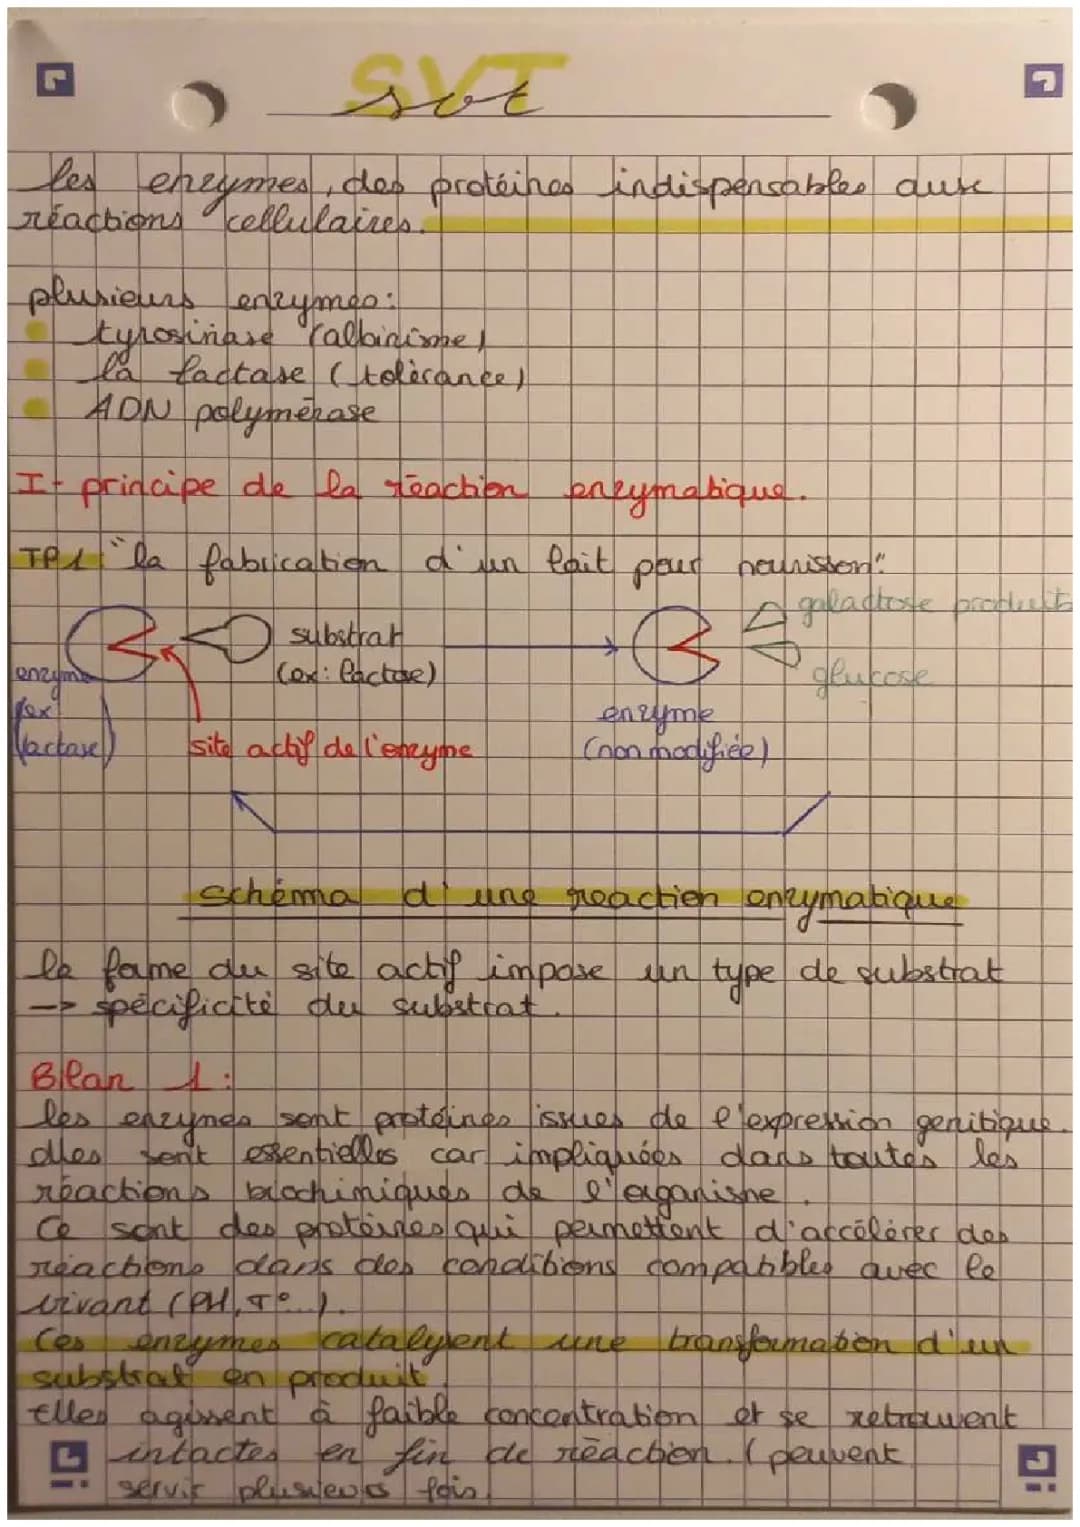 SVT
svt
les enzymes, des protéines indispensables aux
réactions cellulaires.
plusieurs enzymes:
tyrosinase (albinisme)
la lactase (tolérance)
ADN polymérase
I- principe de la réaction enzymatique.
TP1 "la fabrication d'un lait pour nourisson"
galactose produits
substrat
(ex: lactose)
glucose
enzyme
(ex
lactase)
site actif de l'enzyme
enzyme
(non modifiée)
schéma d'une reaction enzymatique
la forme du site actif impose un type de substrat
-> spécificité du substrat.
Bilan 1:
les enzymes sont protéines issues de l'expression genitique.
elles sont essentielles car impliquées dans toutes les
réactions biochimiques de l'organisme.
Ce sont des protéines qui permettent d'accélérer des
réactions dans des conditions compatibles avec le
vivant (PH, T°...).
Ces enzymes catalysent une transformation d'un
substrat en produit.
Elles agissent à faible concentration et se retrouvent
intactes en fin de réaction. (peuvent
servir plusieurs fois.